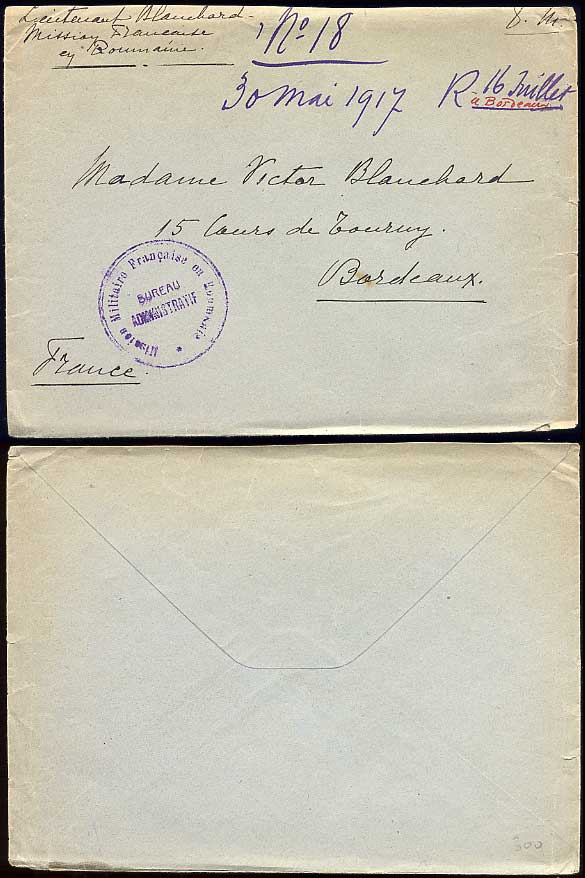 Lieutenant Blanchard
Mission Francaise
en Roumanie.
N° 18
30 Mai 1917
R 16 Juillet
à Bordeaux
Madame Victor Blanchard
15 Cours de Tourny.
Bordeaux.
Mission Militaire Française en Roumanie *
BUREAU
ADMINISTRATIF
France.
300